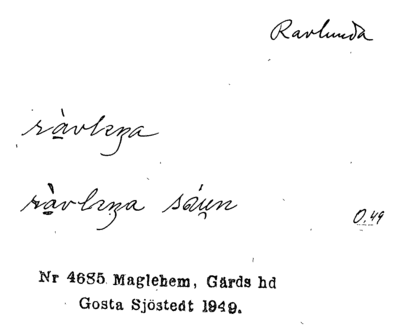 Ravlunda
ràvlęŋa
ràvlęŋa sáu̯n
0.49
Nr 4685 Maglehem, Gärds hd
Gosta Sjöstedt 1949.